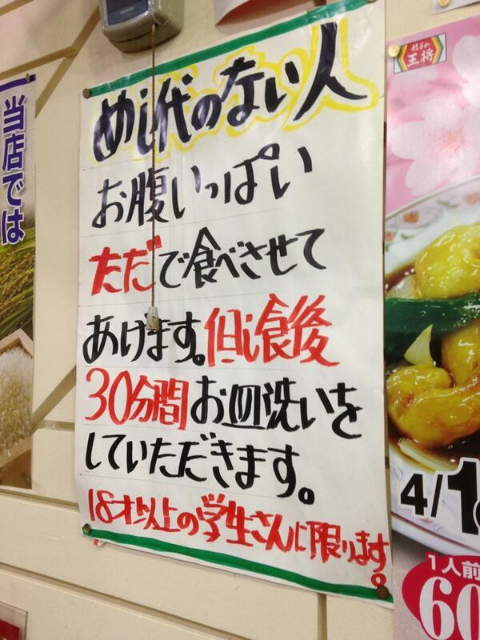 めし代のない人
お腹いっぱい
ただで食べさせて
あげます。但し食後
30分間お皿洗いを
していただきます。
18才以上の学生さんに限ります。
当店では
餃子の
王将
4/1
1人前
60